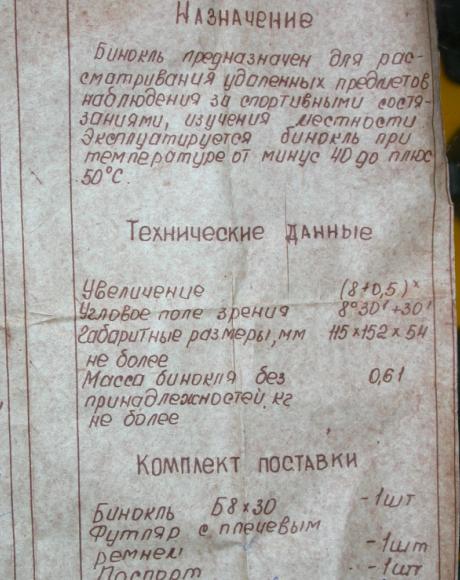 Назначение
Бинокль предназначен для рас-
сматривания удаленных предметов
наблюдения за спортивными состя-
заниями, изучения местности
Эксплуатируется бинокль при
температуре от минус 40 до плюс
50°С.
Технические данные
Увеличение (8±0,5)ˣ
Угловое поле зрения 8°30'±30'
Габаритные размеры, мм 115×152×54
не более
Масса бинокля без 0,61
принадлежностей, кг
не более
Комплект поставки
Бинокль Б8×30 -1шт
Футляр с плечевым
ремнем -1шт
Паспорт -1шт